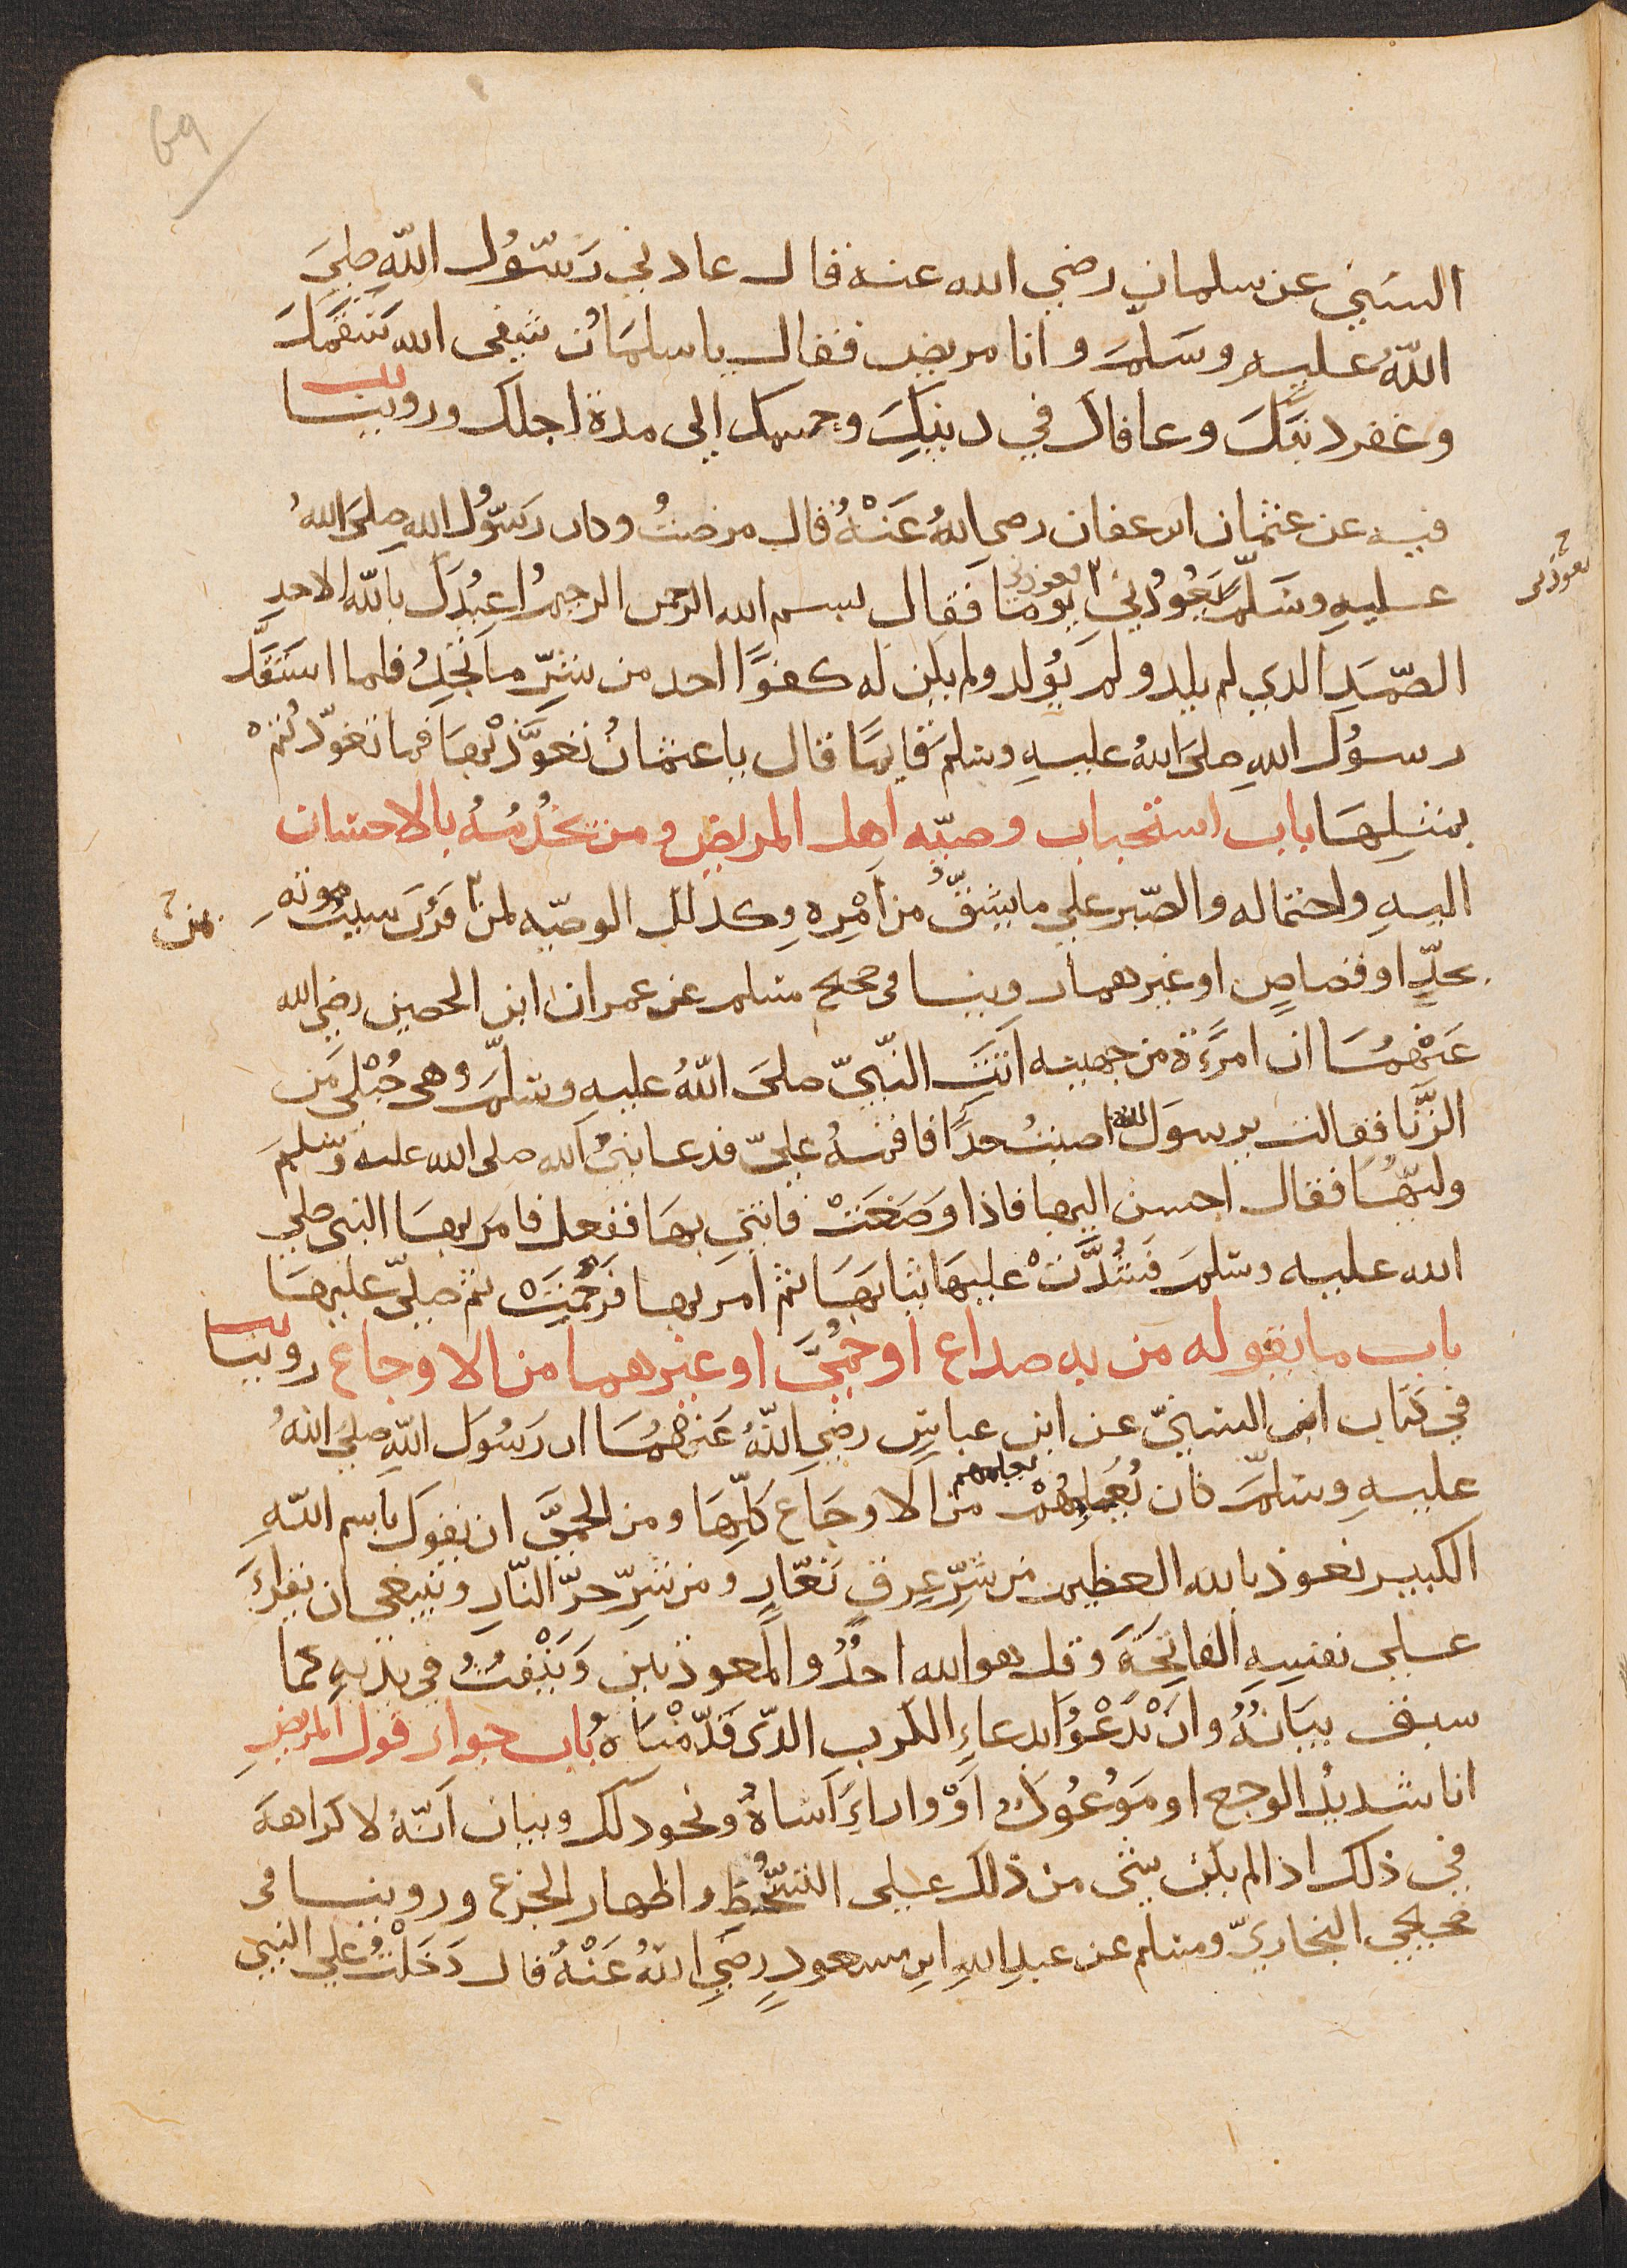 69
السني عن سلمان رضي الله عنه قال عادني رَسُول اللهِ صلىَ
اللهُ عليه وسَلمَ وانا مريض فقال يا سلمَان شفى الله سَقمَك
وغفر ذنبَكَ وعافاك في دينِكِ وجسمك الى مدة اجلك وروينا
فيه عن عثمان ابن عفان رضي اللهُ عَنْهُ قال مرضتُ وكان رسُول اللهِ صلىَ اللهُ
عليهِ وسَلمَّ يَعُودُنيِ يومًا فقال بسم الله الرحمن الرحيم اُعِيْذُكَ باللهِ الاحدِ
يعوذني
الصّمَدِ الذي لم يلد ولم يُولد ولم يكن له كفوًا احد من شرِّ ما تجدُ فلما استقلَّ
رسوُل اللهِ صلىَ اللهُ عليهِ وسلمَ قايمًا قال يا عثمانُ تعوَّذْ بهَا فما تعوّذتمْ
بمثلِهَا باب استحباب وصيّه اهل المريض ومن يخدُمُهُ بالاحسان
اليهِ واحتماله والصّبر علي ما يشقُّ من اَمْرِه وكذلك الوصيّه لمن قَرُبَ سببُ موتهِ
بحدٍّ او قصاصٍ او غيرهما روينا فى صحيح مسلم عن عمران ابن الحصين رضي الله
عَنْهُمَا ان امرَءَة من جهينه اتتَ النّبيّ صلىَ اللهُ عليهِ وسَلمّ وهى حُبْلىَ مَن
الزَّنا فقالت يرسوَل الله اصبتُ حدًا فاقمهُ عليّ فدعا نبيُ الله صلى الله عليه وسلمَ
وليهُّا فقال احسن اليها فاذا وَضَعَتْ فاتني بها ففعل فامَر بهَا النبي صلي
الله عليه وسلمَ فَشُدَّتْ عليهَا ثيابهَا ثم امر بها فرُجِمَتْ ثم صليّ عليهَا
باب ما يقوله من به صداع اوحُمىَّ او غيرهما من الاوجاع روينا
في كتاب ابن السنيّ عن ابن عباسٍ رضي اللهُ عَنهُمَا ان رَسُول اللهِ صلىَ اللهُ
عليهِ وسلمَّ كان يُعَلِمُهُمْ من الاوجَاعِ كلّهَا ومن الحميَّ ان يقوَل باسم اللهِ
الكبير نعوذ بالله العظيم من شرِّ عِرقٍ نَعّارٍ ومن شرّ حرّ النّارِ وينبغي ان يقراءَ
علي نفسِهِ الفاتِحَةَ وقل هو الله احدُ والمعوذتين وَيَنْفثُ في يديهِ كما
سبق بيَانُهُ وان يَدْعُوَا بدعاءِ الكرب الذّى قدّمْنَاهُ باب جواز قول المريضِ
انا شديدُ الوجع او مَوعُوكٌ اَوْ واراءسَاهُ ونحو ذلك وبيان اَنّهُ لا كراهةَ
في ذلك اذا لم يكن شى من ذلك على التسّخُطِ واظهار الجزع وروينا فى
صحيحي البخاريّ ومسلم عن عبدِ اللهِ ابن مسعودٍ رضَيِ اللهُ عَنْهُ قال دَخَلْتُ علي النبي